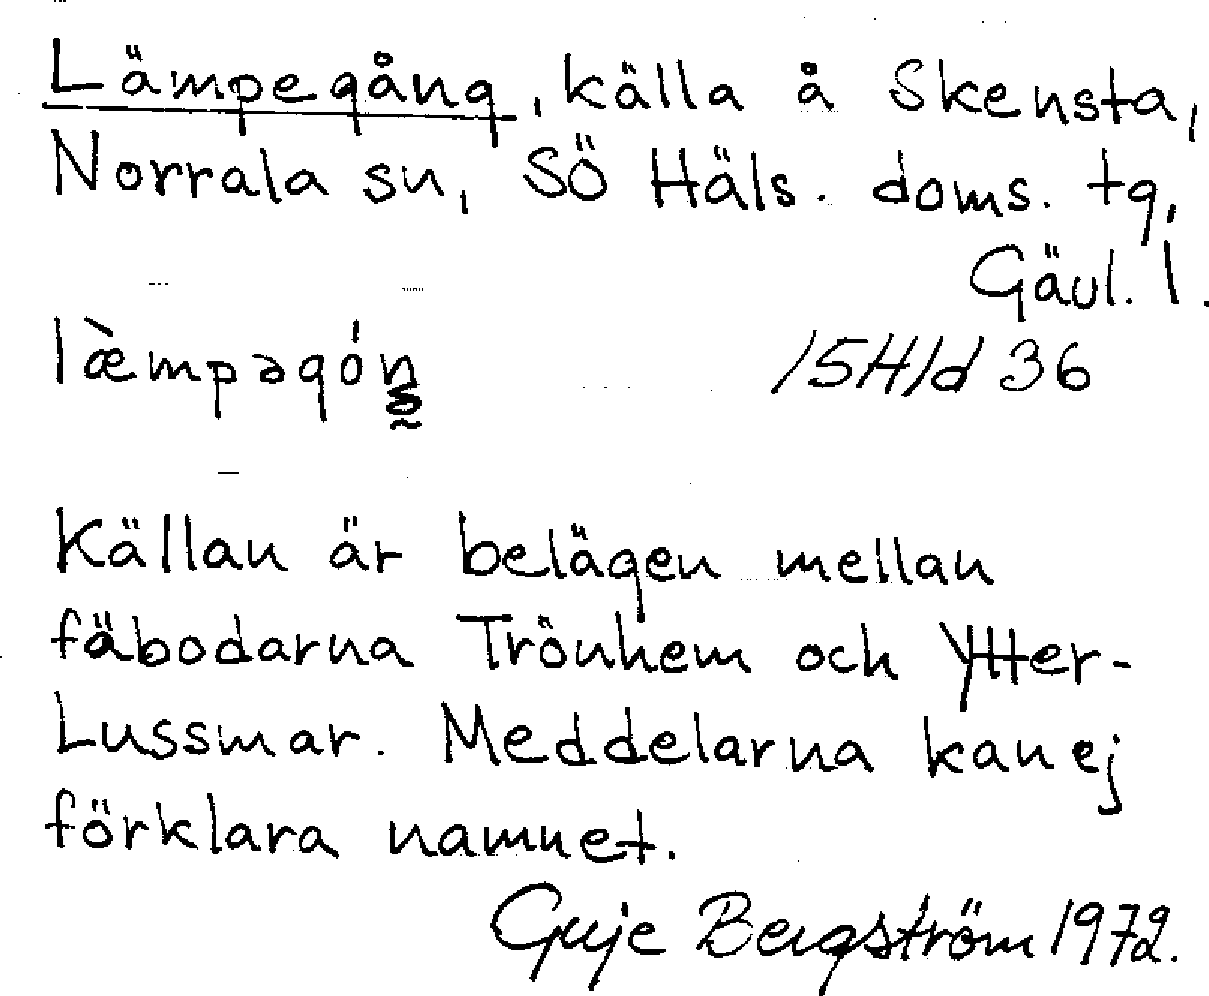 Lämpegång, källa å Skensta,
Norrala sn, SÖ Häls. doms. tg,
Gävl. l.
læ̀mpəgóŋ
15H1d 36
Källan är belägen mellan
fäbodarna Trönhem och Ytter-
Lussmar. Meddelarna kan ej
förklara namnet.
Guje Bergström 1972.